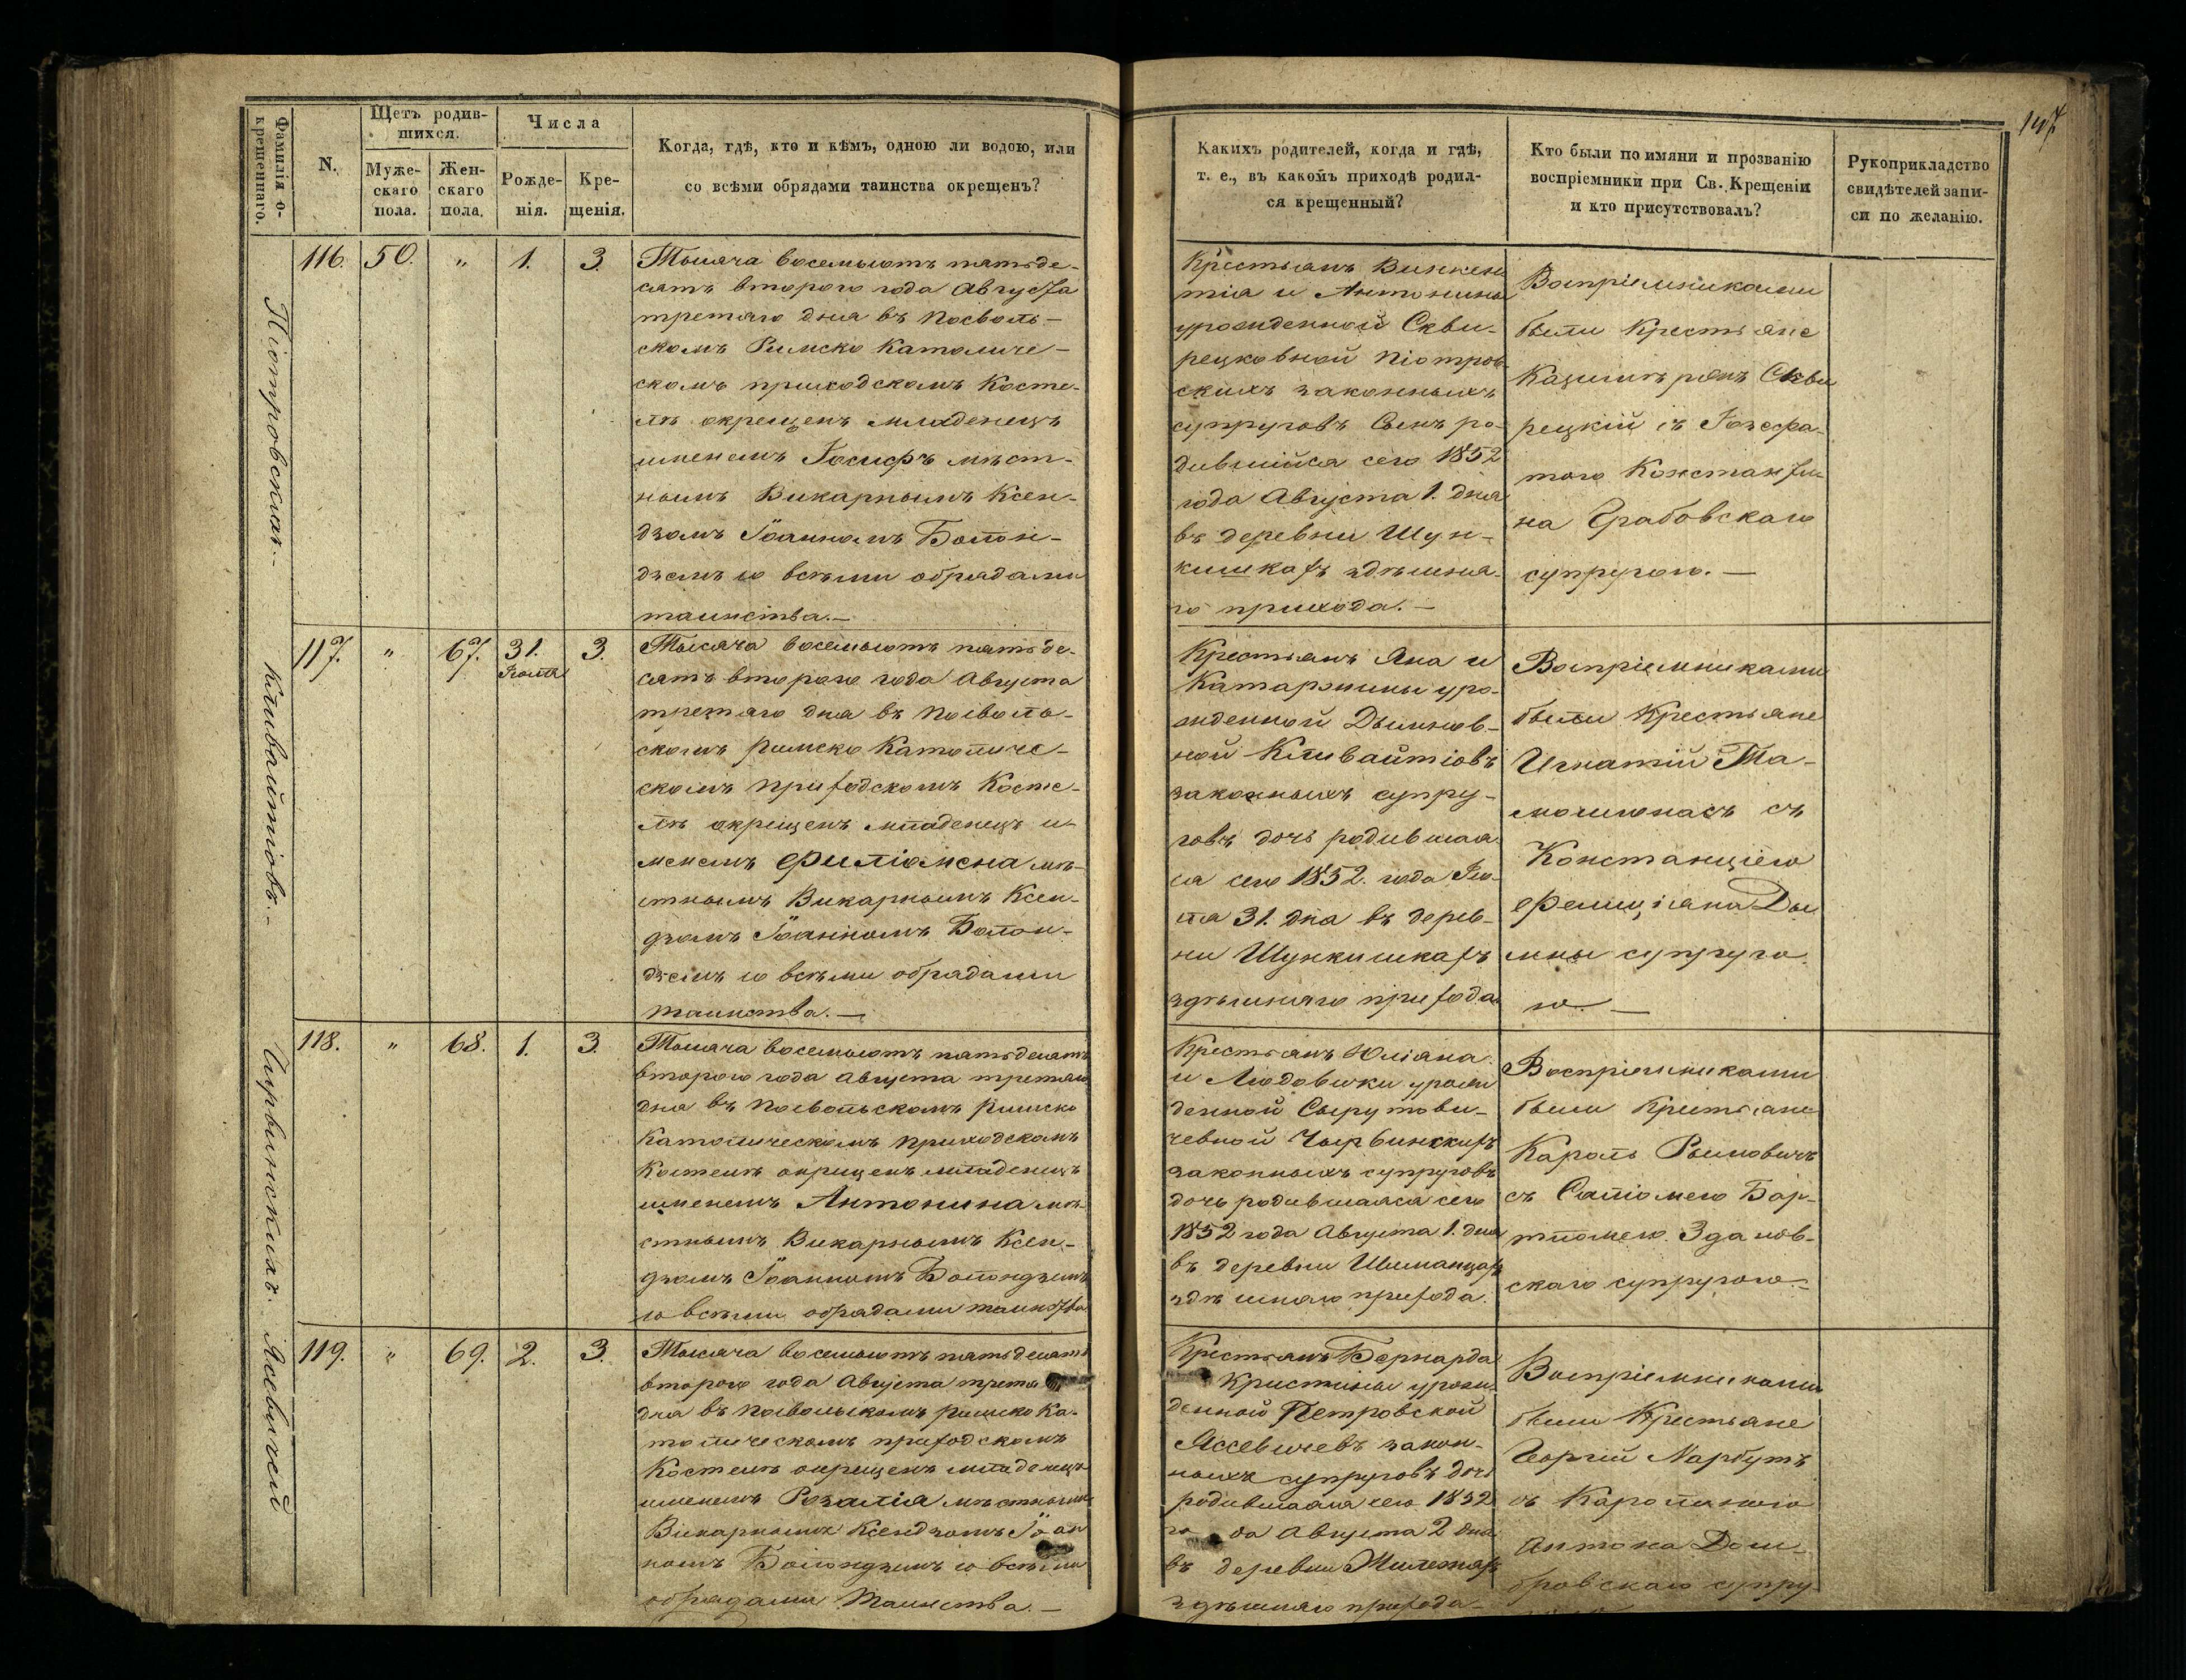 147
Фамилія о-
крещеннаго.
N.
Щетъ родив-
шихся.
Муже-
скаго
пола.
Жен-
скаго
пола.
Числа
Рожде-
нія.
Кре-
щенія.
Когда, гдѣ, кто и кѣмъ, одною ли водою, или
со всѣми обрядами таинства окрещенъ?
Какихъ родителей, когда и гдѣ,
т. е., въ какомъ приходѣ родил-
ся крещенный?
Кто были по имяни и прозванію
воспріемники при Св. Крещеніи
и кто присутствовалъ?
Рукоприкладство
свидѣтелей запи-
си по желанію.
Піотровскихъ.
116. 50. " 1. 3.
Тысяча восемьсотъ пятьде-
сятъ второго года Августа
третяго дня въ Посволь-
скомъ Римско Католиче-
скомъ приходскомъ Косте-
лѣ окрещенъ младенецъ
именемъ Іосифъ мѣст-
нымъ Викарнымъ Ксен-
дзомъ Іоанномъ Болон-
дземъ со всѣми обрядами
таинства.—
Крестьянъ Викен
тія и Антонины
урожденной Скви-
рецковной Піотров
скихъ законныхъ
супруговъ Сынъ ро-
дившійся сего 1852
года Августа 1. дня
въ деревни Шун-
кишкахъ здѣшня-
го прихода.—
Воспріемниками
были Крестьяне
Казимѣръ Скви
рецкій съ Іозефа-
тою Константи
на Грабовскаго
супругою.—
Кливайтіовъ.—
117. " 67. 31. Іюля 3.
Тысяча восемьсотъ пятьде-
сятъ второго года Августа
третяго дня въ Посволь-
скомъ римско Католиче-
скомъ приходскомъ Косте-
лѣ окрещенъ младенецъ и-
менемъ Филіомена мѣ-
стнымъ Викарнымъ Ксен-
дзомъ Іоанномъ Болон-
дземъ со всѣми обрядами
таинства.—
Крестьянъ Яна и
Катаржины уро-
жденной Дымнов-
ной Кливайтіовъ
законныхъ супру-
говъ дочь родившая
ся сего 1852. года Ію-
ля 31. дня въ дерев-
ни Шункишкахъ
здѣшняго прихода
Воспріемниками
были Крестьяне
Игнатій Та-
мошюнасъ съ
Констанціею
Фелиціана Ды
мны супруго
ю.—
Чирвинскихъ.
118. " 68. 1. 3.
Тысяча восемьсотъ пятьдесятъ
второго года Августа третяго
дня въ Посвольскомъ римско
Католическомъ приходскомъ
Костелѣ окрещенъ младенецъ
именемъ Антонина мѣ-
стнымъ Викарнымъ Ксен-
дзомъ Іоанномъ Болондземъ
со всѣми обрядами таинства
Крестьянъ Юліана
и Людовики урож
денной Сырутови-
чевной Чырвинскихъ
законныхъ супруговъ
дочь родившаяся сего
1852 года Августа 1. дня
въ деревни Шиманцахъ
здѣшняго прихода.
Воспріемниками
были Крестьяне
Кароль Рымовичъ
съ Саліомею Бар-
тломею Зданов-
скаго супругою.—
Ясевичей
119. " 69. 2. 3.
Тысяча восемьсотъ пятьдесятъ
второго года Августа третя
дня въ Посвольскомъ римско Ка-
толическомъ приходскомъ
Костелѣ окрещенъ младенецъ
именемъ Розалія мѣстнымъ
Викарнымъ Ксендзомъ Іоан
номъ Болондземъ со всѣми
обрядами Таинства.—
Крестьянъ Бернарда
Кристины урож
денной Петровской
Яссевичевъ закон-
ныхъ супруговъ дочь
родившаяся сего 1852
года Августа 2 дня
въ деревни Жилетяхъ
здѣшняго прихода—
Воспріемниками
были Крестьяне
Георгій Марбутъ
съ Каролиною
Антона Дом-
бровскаго супру